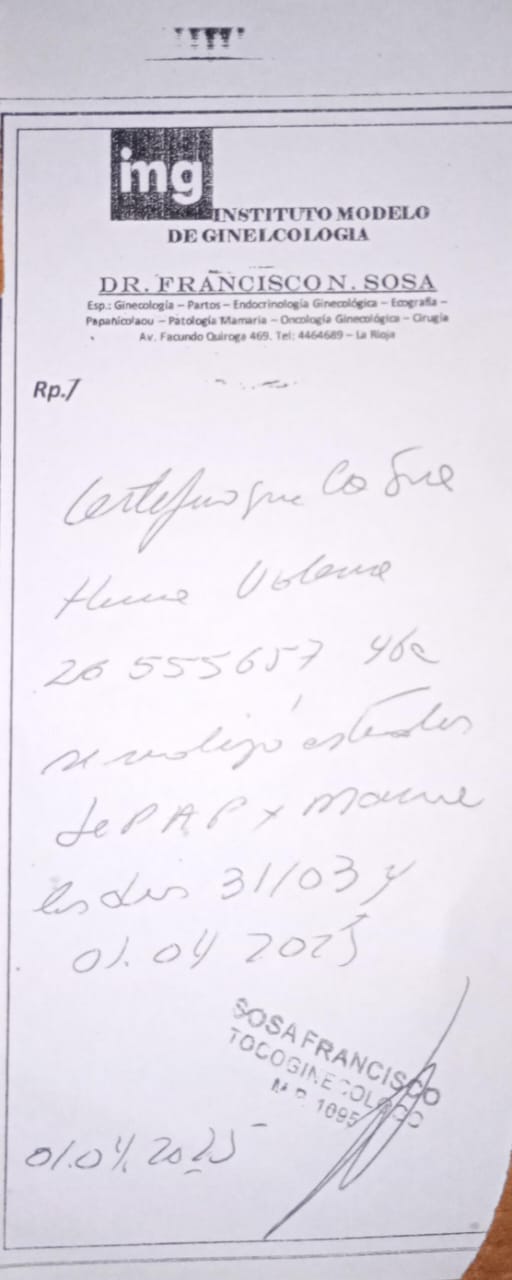 img
INSTITUTO MODELO
DE GINELCOLOGIA
DR. FRANCISCO N. SOSA
Esp.: Ginecología – Partos – Endocrinología Ginecológica – Ecografía –
Papanicolaou – Patología Mamaria – Oncología Ginecológica – Cirugía
Av. Facundo Quiroga 469. Tel: 4464689 – La Rioja
Rp./
Certifico que
26 555657 46a
se realizó estudios
de PAP y
los dias 31/03 y
01.04 2025
SOSA FRANCISCO
TOCOGINECOLOGO
M.P. 1095
01.04.2025